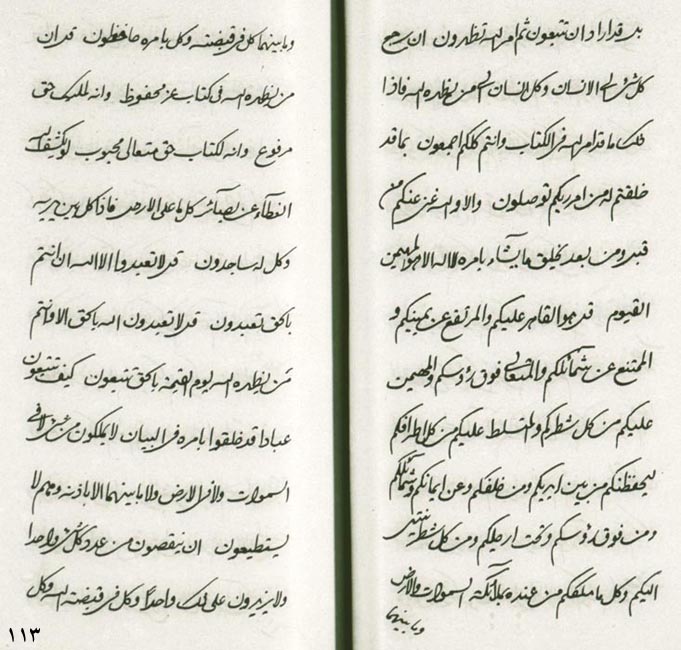 قد اراد ان تتبعون ثم امر الله تظهرون ان يرجع
كل شيء الى الانسان وكل الانسان الى من يظهره الله فاذا
ذلك ما قد امر الله في الكتاب وانتم كلكم اجمعون بما قد
خلقتم له من امر ربكم توصلون والا والله غني عنكم من
قبل ومن بعد يخلق ما يشاء بامره لا اله الا هو المهيمن
القيوم قل هو القاهر عليكم والمرتفع عن يمينكم و
الممتنع عن شمائلكم والمتعالي فوق رؤسكم والمهيمن
عليكم من كل شطركم والمتسلط عليكم من كل اطرافكم
ليحفظنكم من بين ايديكم ومن خلفكم وعن ايمانكم وشمائلكم
ومن فوق رؤسكم وتحت ارجلكم ومن كل شطر ينتهي
اليكم وكل من عنده بملائكة السموات والارض
وما بينهما
وما بينهما كل في قبضته وكل بامره حافظون قل ان
من يظهره الله في كتاب عز محفوظ وانه لمليك حق
مرفوع وانه لكتاب حق متعالي محبوب لو يكشف الله
الغطاء عن بصائر كل ما على الارض فاذا كل بين يديه
وكل له ساجدون قل لا تعبدوا الا الله ان انتم
بالحق تعبدون قل لا تعبدون الله بالحق الا وانتم
من يظهره الله يوم القيمة بالحق تتبعون كيف تتبعون
عبادا قد خلقوا بامره في البيان لا يملكون من شيء لا في
السموات ولا في الارض ولا ما بينهما الا باذنه ومنهم لا
يستطيعون ان ينقصون من عدد كل شيء واحدا
ولا يزيدون على ذلك واحدا وكل في قبضة الله وكل
١١٣